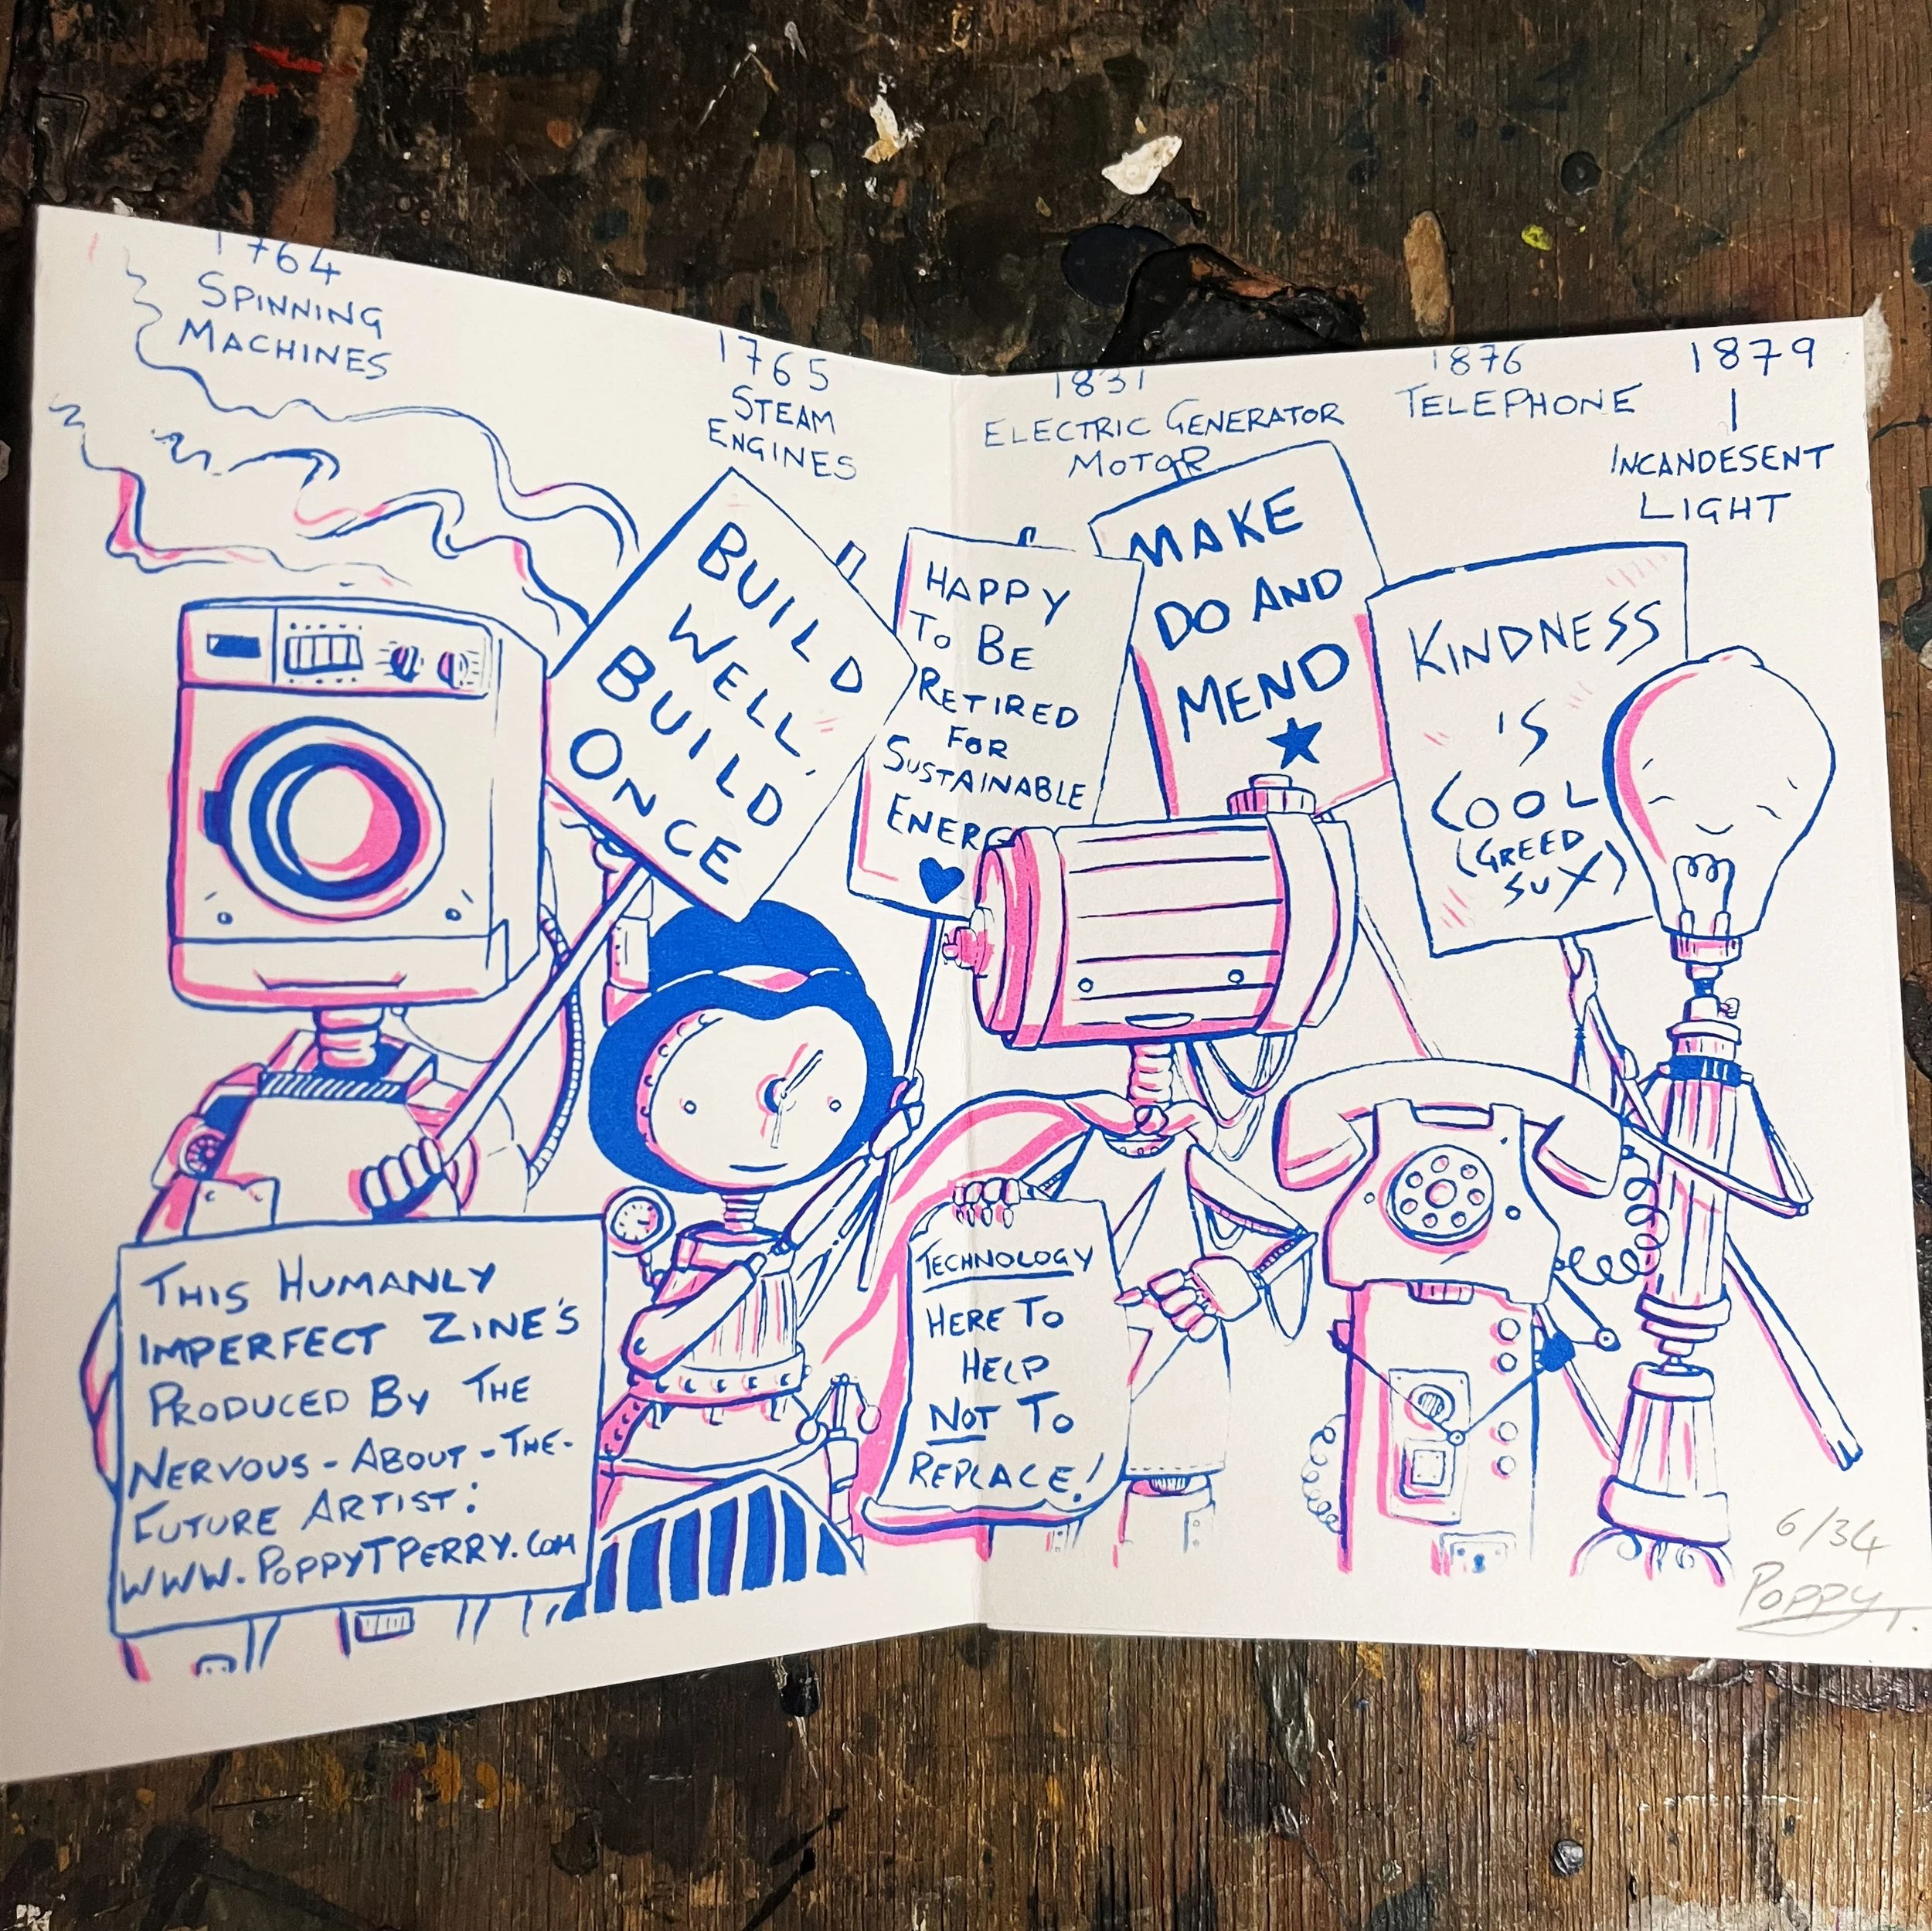 1764
SPINNING
MACHINES
1765
STEAM
ENGINES
1831
ELECTRIC GENERATOR
MOTOR
1876
TELEPHONE
1879
INCANDESENT
LIGHT
BUILD
WELL,
BUILD
ONCE
HAPPY
TO BE
RETIRED
FOR
SUSTAINABLE
ENERG
MAKE
DO AND
MEND
KINDNESS
IS
COOL
(GREED
SUX)
THIS HUMANLY
IMPERFECT ZINE'S
PRODUCED BY THE
NERVOUS-ABOUT-THE-
FUTURE ARTIST:
WWW.POPPYTPERRY.COM
TECHNOLOGY
HERE TO
HELP
NOT TO
REPLACE!
6/34
POPPY T.